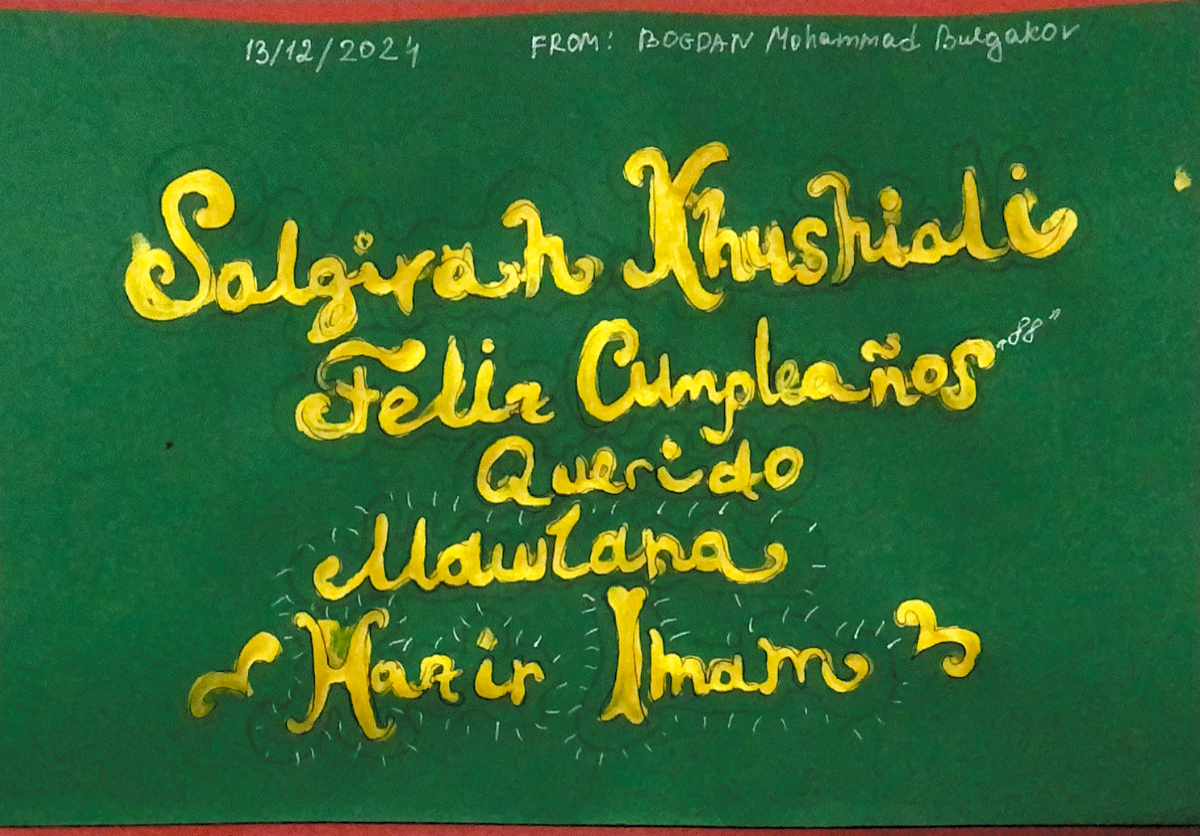 13/12/2024 FROM: BOGDAN Mohammad Bulgakov
Salgirah Khushiali
Feliz Cumpleaños "88"
Querido
Mawlana
Hazir Imam